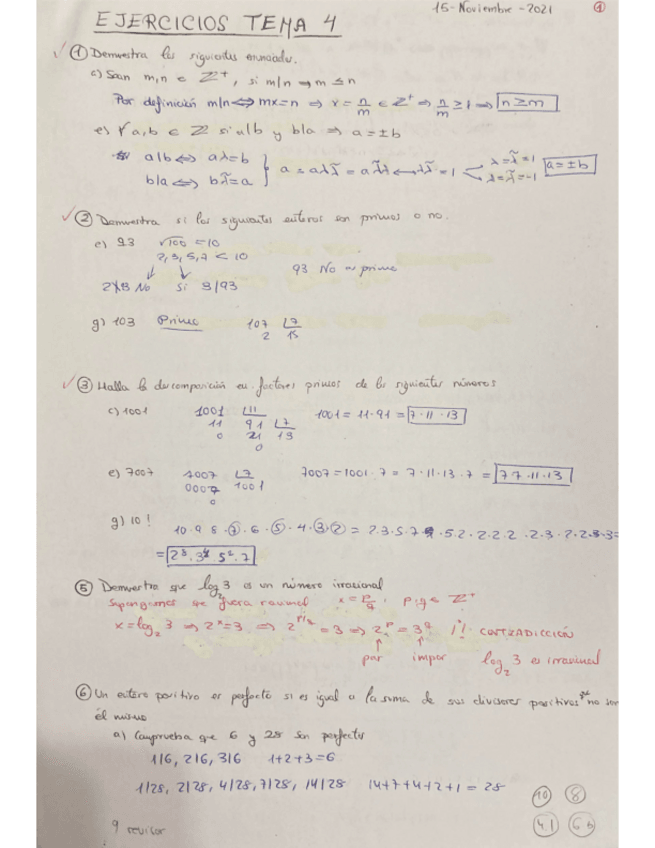 15-Noviembre-2021 ①
EJERCICIOS TEMA 4
✓ ① Demuestra los siguientes enunciados.
c) Sean m,n ∈ ℤ⁺, si m/n ⇒ m ≤ n
Por definición m/n ⟺ mx=n ⇒ x = n/m ∈ ℤ⁺ ⇒ n/m ≥ 1 ⇒ n ≥ m
e) ∀ a,b ∈ ℤ si a/b y b/a ⇒ a = ±b
a/b ⟺ aλ=b
b/a ⟺ bλ̃=a } a = aλλ̃ = aλ̃λ ⟷ λλ̃ = 1 λ=λ̃=1 λ=λ̃=-1 a=±b
✓ ② Demuestra si los siguientes enteros son primos o no.
e) 93 √100 = 10
2,3,5,7 < 10
2∤93 No Si 3/93 93 No es primo
g) 103 Primo 107 7
2 15
✓ ③ Halla la descomposición en factores primos de los siguientes números
c) 1001 1001 11 1001 = 11·91 = 7·11·13
11 91 7
0 21 13
0
e) 7007 7007 7 7007 = 1001·7 = 7·11·13·7 = 7·7·11·13
0007 1001
0
g) 10!
10·9·8·7·6·5·4·3·2 = 2·3·5·7 · 5·2·2·2·2·2·3·2·2·3·3=
= 2⁸·3⁴·5²·7
⑤ Demuestra que log₂3 es un número irracional
Supongamos que fuera racional x = p/q, p,q ∈ ℤ⁺
x = log₂ 3 ⇒ 2ˣ = 3 ⇒ 2^(p/q) = 3 ⇒ 2^p = 3^q ¡! CONTRADICCIÓN
par impar log₂3 es irracional
⑥ Un entero positivo es perfecto si es igual a la suma de sus divisores positivos que no son
él mismo
a) Comprueba que 6 y 28 son perfectos
1/6, 2/6, 3/6 1+2+3=6
1/28, 2/28, 4/28, 7/28, 14/28 14+7+4+2+1 = 28
10 8
41 6b
9 revisar